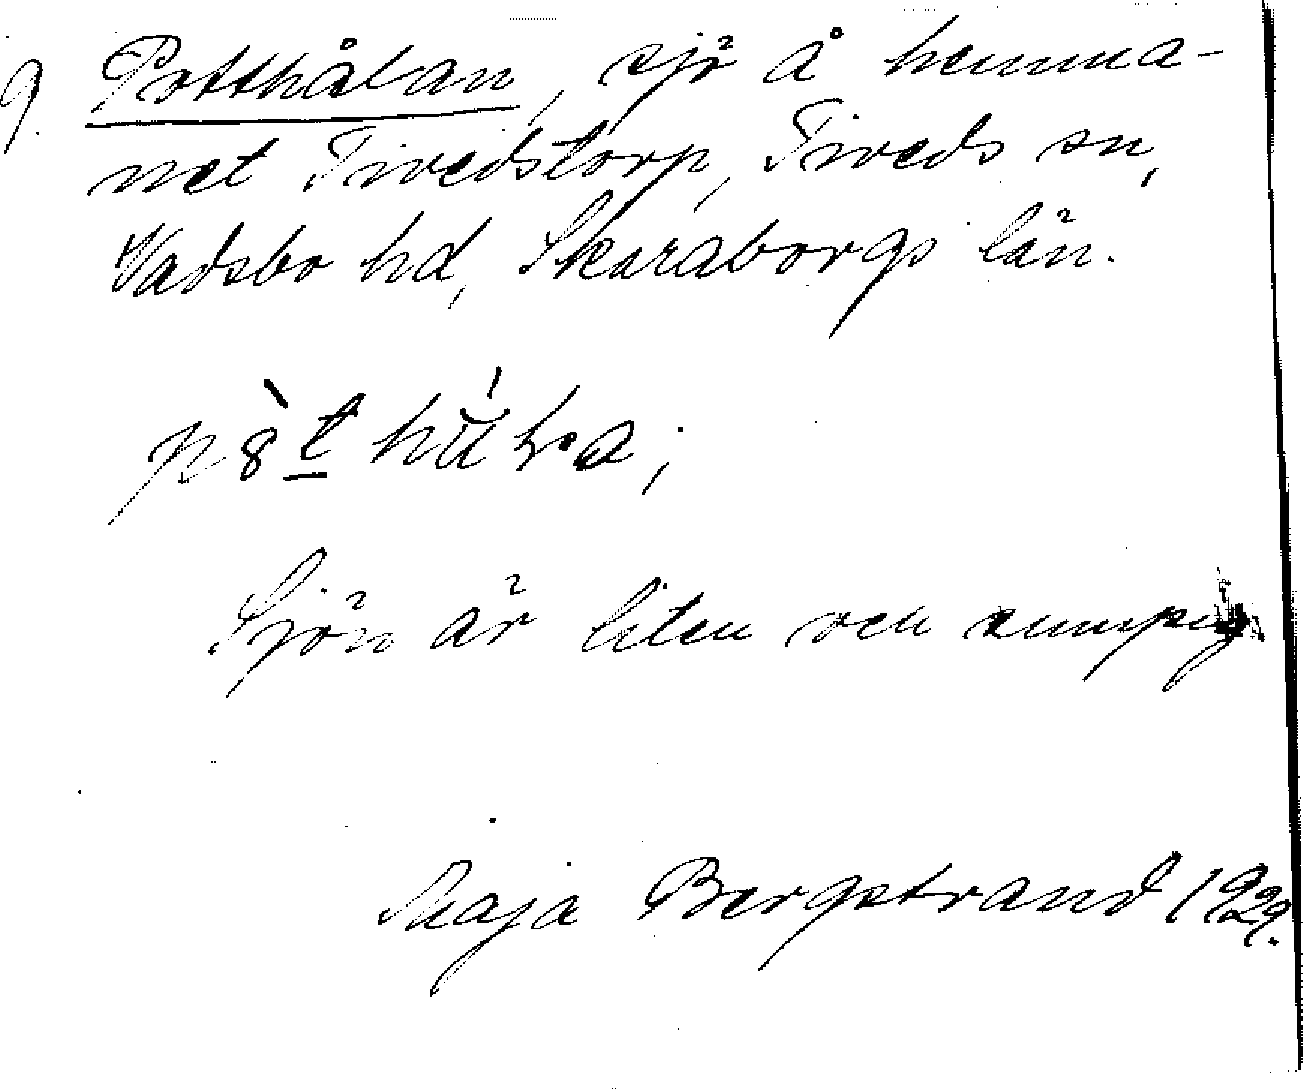 9. Potthålan, sjö å hemma-
net Tivedstorp, Tiveds sn,
Vadsbo hd, Skaraborgs län.
Sjön är liten och sumpig
Maja Bergstrand 1929.